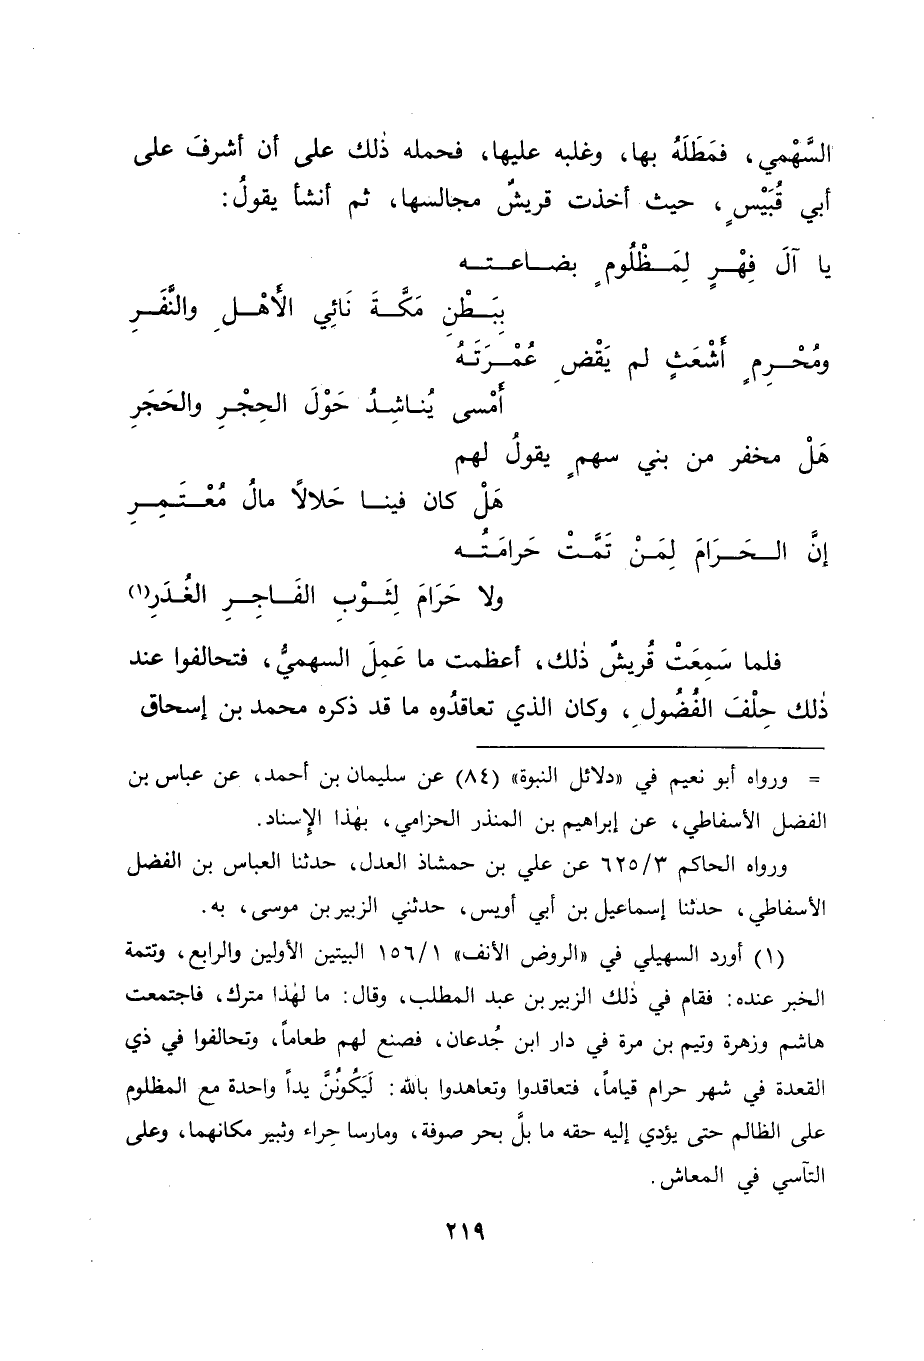 السَّهْمي، فمَطَلَهُ بها، وغلبه عليها، فحمله ذٰلك على أن أشرفَ على
أبي قُبَيْسٍ، حيث أخذت قريشٌ مجالسها، ثم أنشأ يقولُ:
يا آلَ فِهْرٍ لِمَظْلُومٍ بضاعته
بِبَطْنِ مَكَّةَ نَائِي الأَهْلِ والنَّفَرِ
ومُحْرِمٍ أَشْعَثٍ لم يَقْضِ عُمْرَتَهُ
أَمْسى يُناشِدُ حَوْلَ الحِجْرِ والحَجَرِ
هَلْ مخفر من بني سهمٍ يقولُ لهم
هَلْ كان فينا حَلالاً مالُ مُعْتَمِرِ
إنَّ الحَرَامَ لِمَنْ تَمَّتْ حَرامَتُه
ولا حَرَامَ لِثَوْبِ الفَاجِرِ الغُدَرِ(١)
فلما سَمِعَتْ قُريشٌ ذٰلك، أعظمت ما عَمِلَ السهميُّ، فتحالفوا عند
ذٰلك حِلْفَ الفُضُولِ، وكان الذي تعاقدُوه ما قد ذكره محمد بن إسحاق
= ورواه أبو نعيم في «دلائل النبوة» (٨٤) عن سليمان بن أحمد، عن عباس بن
الفضل الأسفاطي، عن إبراهيم بن المنذر الحزامي، بهٰذا الإِسناد.
ورواه الحاكم ٦٢٥/٣ عن علي بن حمشاذ العدل، حدثنا العباس بن الفضل
الأسفاطي، حدثنا إسماعيل بن أبي أويس، حدثني الزبير بن موسى، به.
(١) أورد السهيلي في «الروض الأنف» ١٥٦/١ البيتين الأولين والرابع، وتتمة
الخبر عنده: فقام في ذٰلك الزبير بن عبد المطلب، وقال: ما لهٰذا مترك، فاجتمعت
هاشم وزهرة وتيم بن مرة في دار ابن جُدعان، فصنع لهم طعاماً، وتحالفوا في ذي
القعدة في شهر حرام قياماً، فتعاقدوا وتعاهدوا بالله: لَيَكُونُنَّ يداً واحدة مع المظلوم
على الظالم حتى يؤدي إليه حقه ما بلَّ بحر صوفة، ومارسا حِراء وثبير مكانهما، وعلى
التآسي في المعاش.
٢١٩